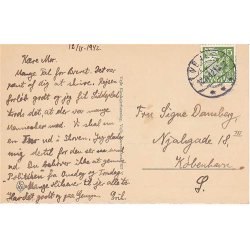 12/11 1942.
Kære Mor.
Mange Tak for Brevet. Det var
pænt af dig at skrive. Rejsen
forløb godt og jeg fik Siddeplads
trods det, at der var mange
Mennesker med. Vi skal en
en Tur ud i Skoven. Jeg glæder
mig dertil for den ser
ud. Du behøver ikke at gemme
Politiken fra Onsdag og Torsdag.
Mange Hilsner til jer alle.
Havdet godt og paa Gensyn.
VEJLE
Frø. Signe Damberg
Njalsgade 18,
København
S.